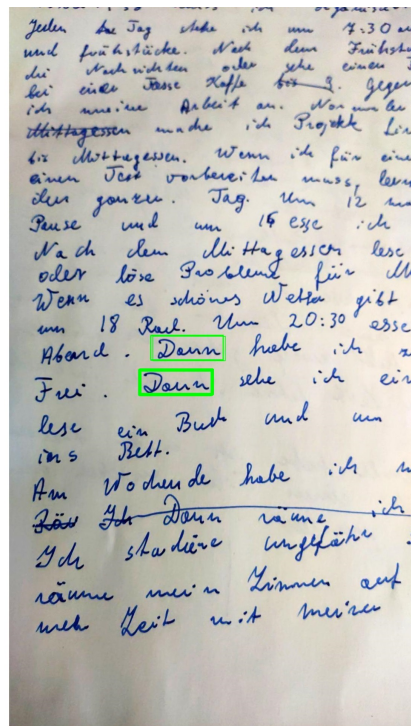 Jeden Tag stehe ich um 7:30 a
und frühstücke. Nach dem Frühst
die Nachrichten oder sehe einen
bei einer Tasse Kaffe bis 9. Gegen
ich meine Arbeit an. Normaler
Mittagessen mache ich Projekte
bis Mittagessen. Wenn ich für eine
einen Test vorbereiten muss, lern
den ganzen Tag. Um 12 ma
Pause und um 16 esse ich
Nach dem Mittagessen lese
oder löse Probleme für M
Wenn es schönes Wetter gibt
um 18 Rad. Um 20:30 esse
Abend. Dann habe ich
Frei. Dann sehe ich ein
lese ein Buch und um
ins Bett.
Am Wochende habe ich m
Ich Dann räume ich
Ich studiere ungefähr
räume mein Zimmer auf
meh Zeit mit meiner